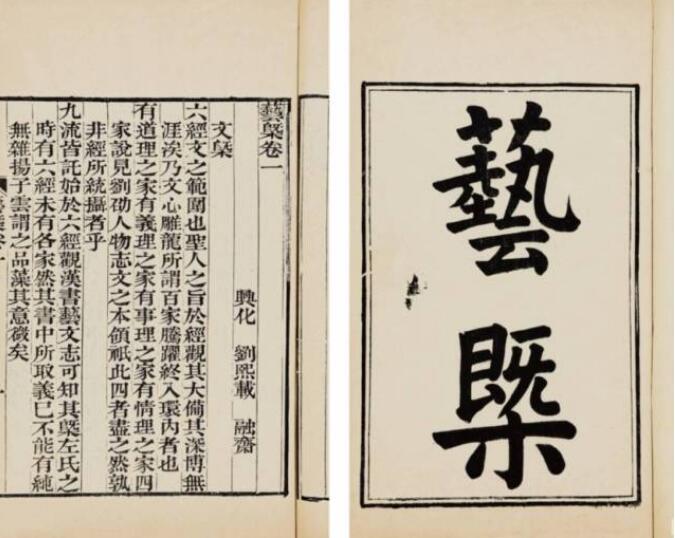 藝槩
藝槩卷一
興化 劉熙載 融齋
文槩
六經文之範圍也聖人之旨於經觀其大備其深博無
涯涘乃文心雕龍所謂百家騰躍終入環內者也
有道理之家有義理之家有事理之家有情理之家四
家說見劉劭人物志文之本領祇此四者盡之然孰
非經所統攝者乎
九流皆託始於六經觀漢書藝文志可知其槩左氏之
時有六經未有各家然其書中所取義已不能有純
無雜揚子雲謂之品藻其意微矣